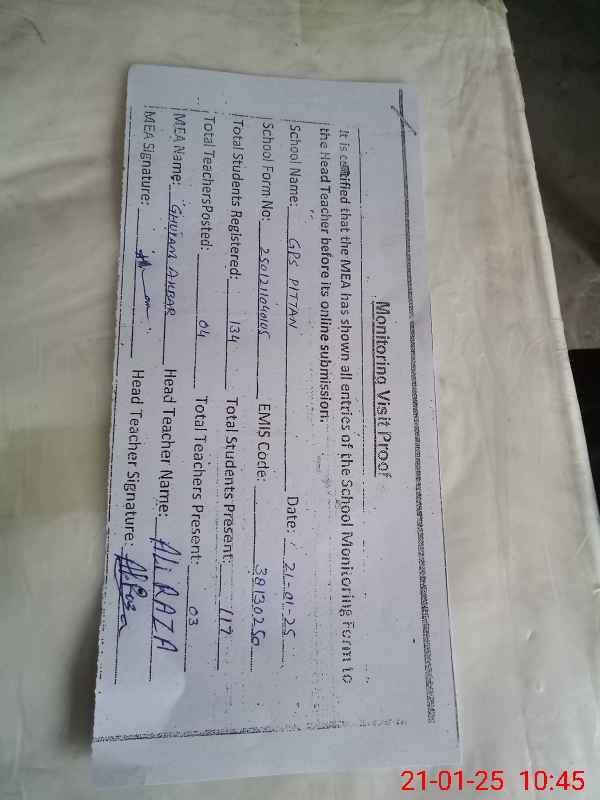 Monitoring Visit Proof
It is certified that the MEA has shown all entries of the School Monitoring Form to
the Head Teacher before its online submission.
School Name: GPS PITTAN Date: 21-01-25
School Form No: 25012104045 EMIS Code: 38130250
Total Students Registered: 134 Total Students Present: 117
Total TeachersPosted: 04 Total Teachers Present: 03
MEA Name: GHULAM AKBAR Head Teacher Name: Ali RAZA
MEA Signature: Head Teacher Signature: Ali Raza
21-01-25 10:45